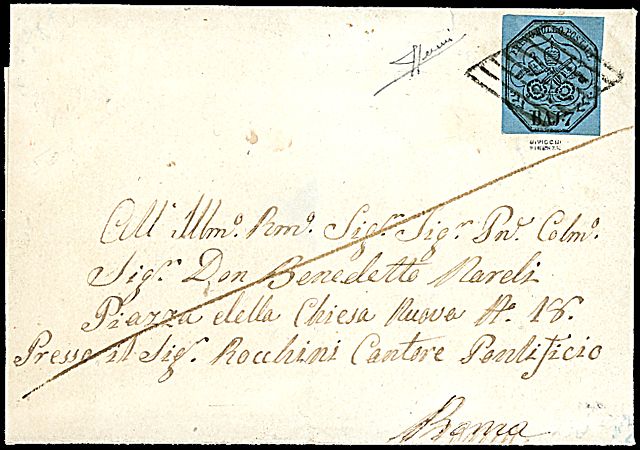 FRANCO BOLLO POSTALE
BAJ. 7
All' Illmo. Rmo. Sigr. Sigr. Pn. Colmo.
Sigr. Don Benedetto Nareli
Piazza della Chiesa Nuova No. 18.
Presso il Sigr. Rocchini Cantore Pontificio
Roma